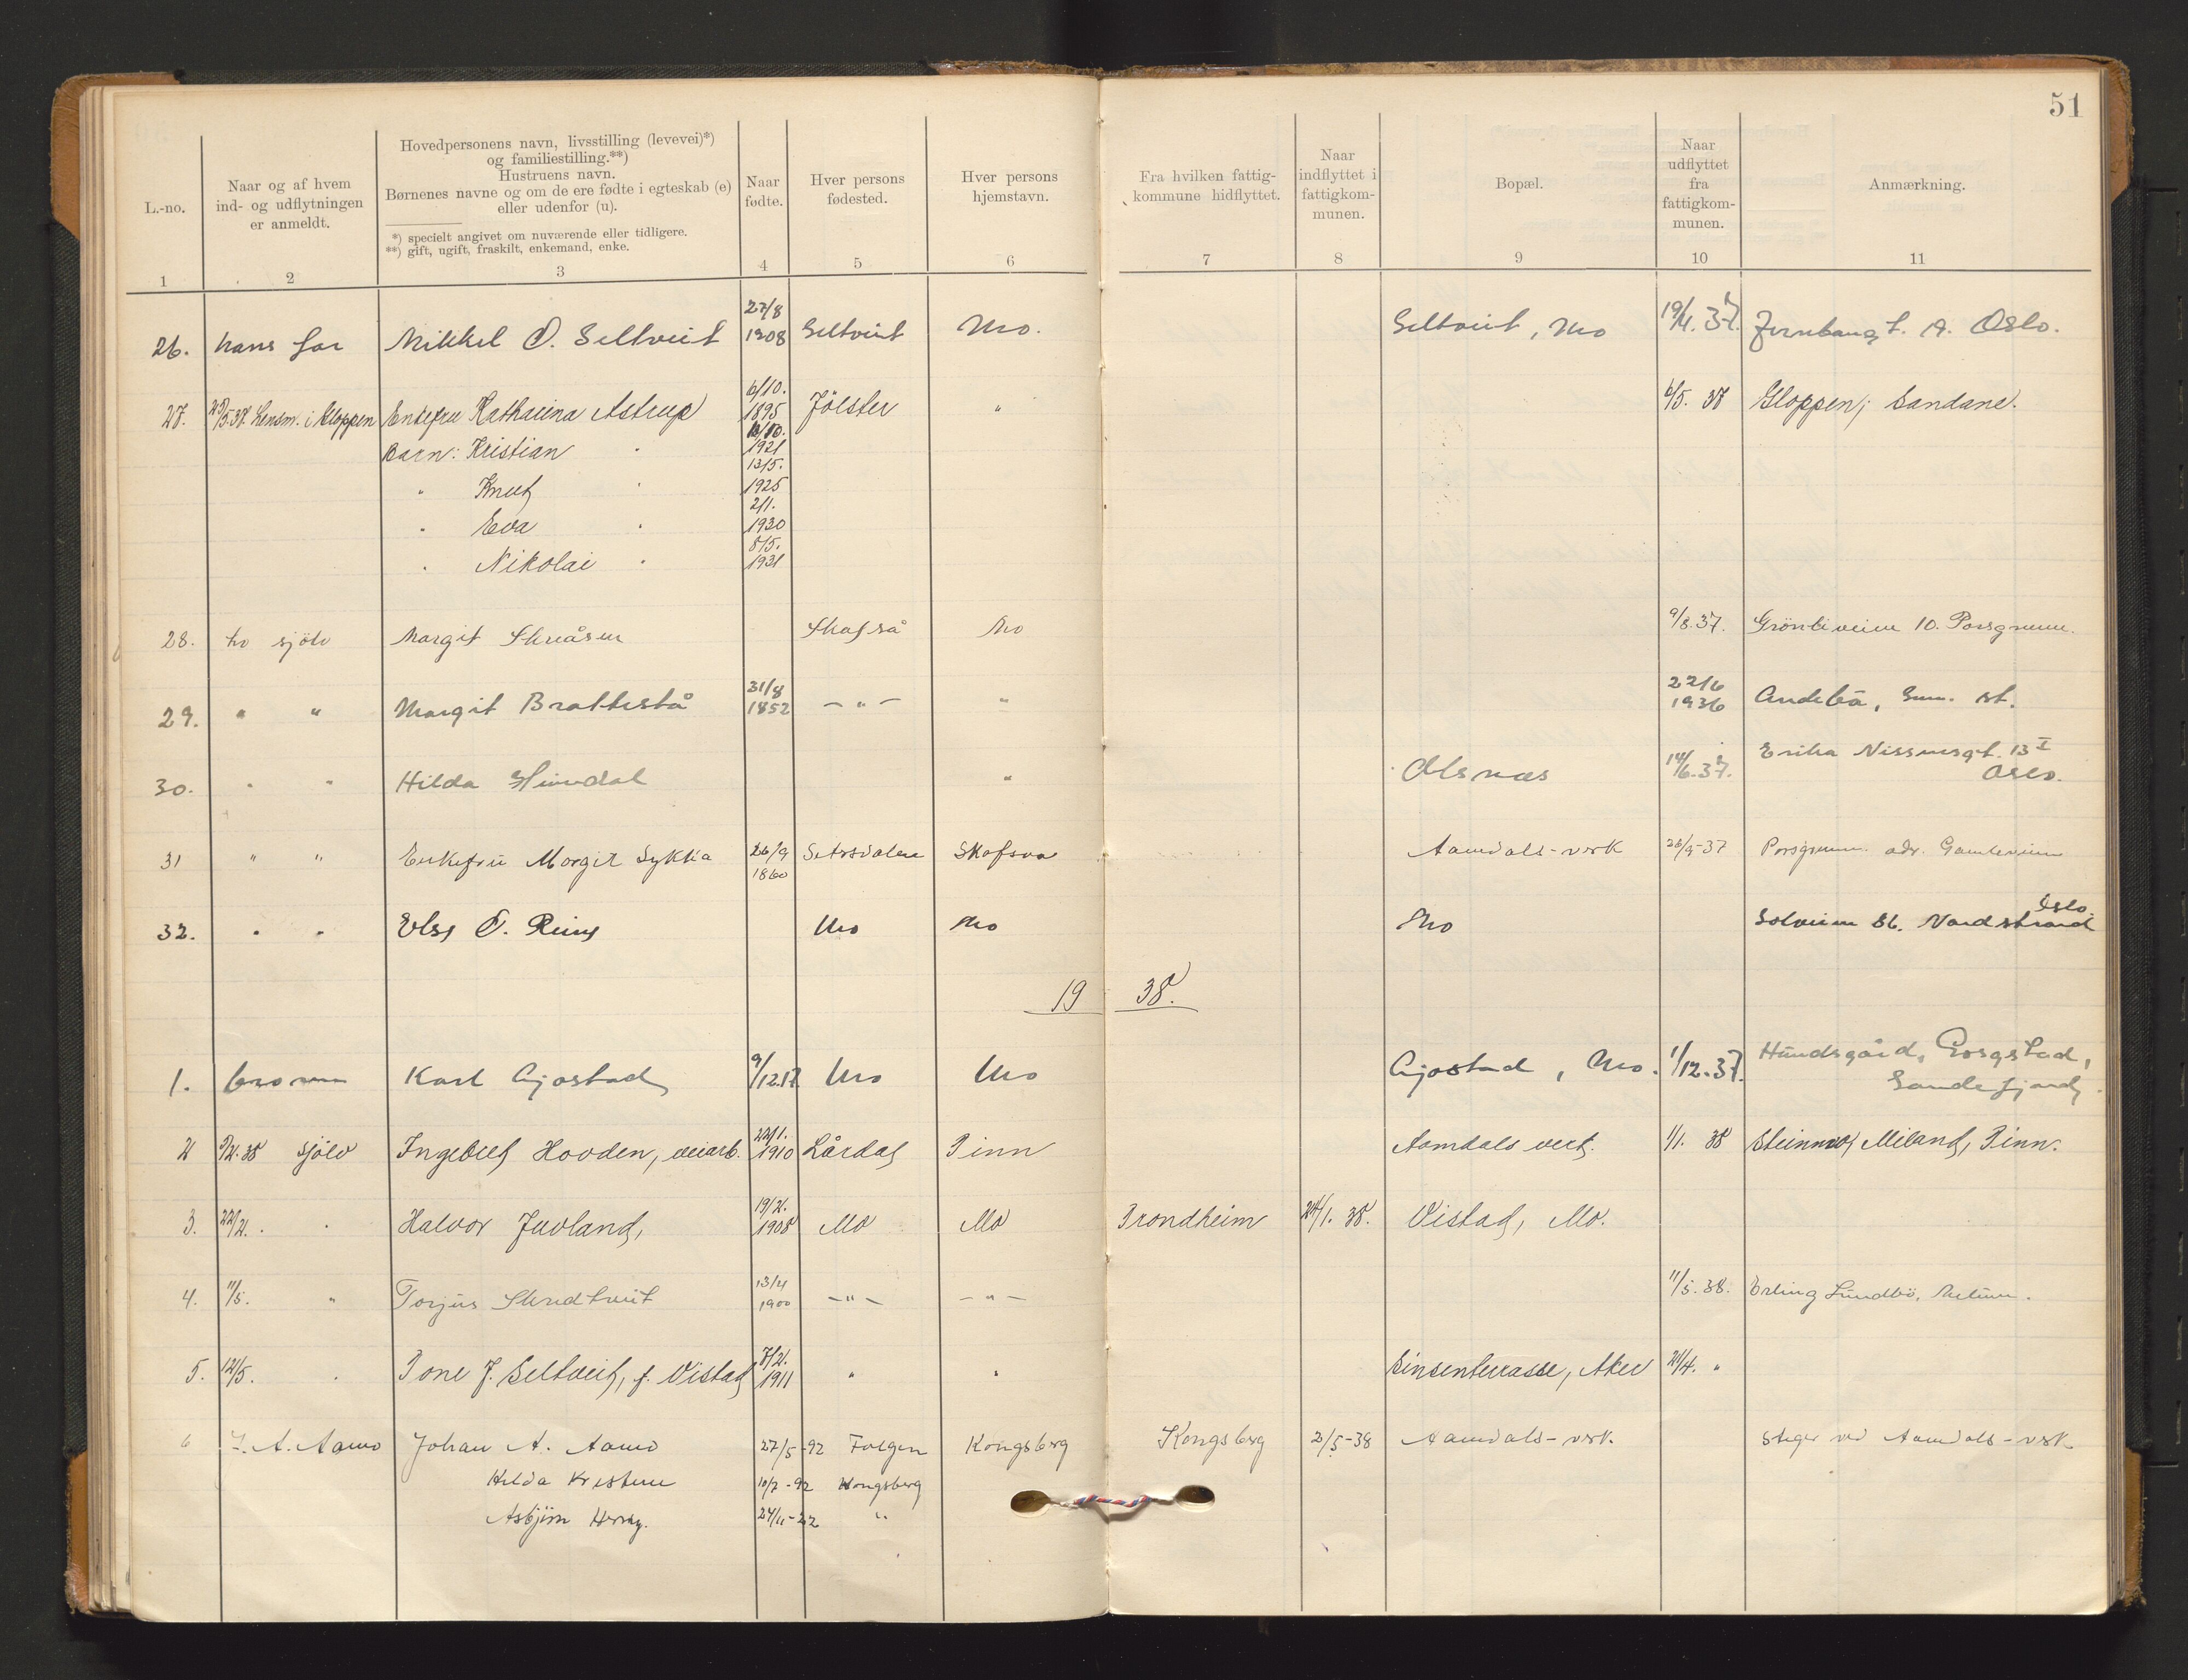 51
L.-no.
Naar og af hvem
ind- og udflytningen
er anmeldt.
Hovedpersonens navn, livsstilling (levevei)*)
og familiestilling.**)
Hustruens navn.
Børnenes navne og om de ere fødte i egteskab (e)
eller udenfor (u).
*) specielt angivet om nuværende eller tidligere.
**) gift, ugift, fraskilt, enkemand, enke.
Naar
fødte.
Hver persons
fødested.
Hver persons
hjemstavn.
Fra hvilken fattig-
kommune hidflyttet.
Naar
indflyttet i
fattigkom-
munen.
Bopæl.
Naar
udflyttet
fra
fattigkom-
munen.
Anmærkning.
1 2 3 4 5 6 7 8 9 10 11
26. hans far Mikkel O. Seltveit 27/8 1908 Seltveit Mo. Seltveit, Mo 19/4. 37. Oslo.
27. 5.37. Lensm. i Gloppen Enkefru Katharina Astrup 6/10. 1895 Jölster " 6/5. 37 Gloppen, Sandane.
Barn: Kristian " 1921
" Knut " 13/5. 1925
" Eva " 2/1. 1930
" Nikolai " 8/5. 1931
28. ho sjölv Margit Skafså Mo 9/8.37. 10. Porsgrunn.
29. " " Margit Brattestå 31/8 1852 – " – " 22/6 1936 Andebu, st.
30. " " Hilda " Olsnes 14/6.37. Erika Nissensgt. 13 I
Oslo.
31 " " Enkefru Margit Sykkia 26/9 1860 Setesdalen Skafsaa Aamdals-verk 26/9-37 Porsgrunn. adr.
32. " " Mo Mo Mo Solveien 86. Nordstrand Oslo.
19 38.
1. Karl Gjostad 9/12.17 Mo Mo Gjostad, Mo. 1/12.37. Sandefjord
2 38 sjölv Ingebret Hovden, veiarb. 22/1. 1910 Lårdal Tinn Aamdals verk. 1/1. 38 Miland, Tinn.
3. 22/2. " Halvor Juvland, 19/2. 1908 Mo Mo Trondheim 24/1. 38. Vistad, Mo.
4. 11/5. " Torjus 13/4 1900 – " – – " – 11/5.38. Erling Lundbö,
5. 12/5. " Tone J. Seltveit, f. Vistad 7/2. 1911 " " Sinsenterrasse, Aker 21/4. "
6 J. A. Aamo Johan A. Aamo 27/5-92 Kongsberg Kongsberg 2/5-38 Aamdals-verk. Stiger ved Aamdals-verk
Hilda Kristine 10/7-92 Kongsberg
Asbjörn Henry. 24/11-22 "